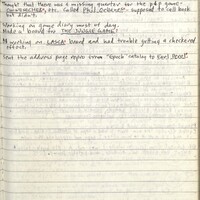 Thought that there was a missing quarter for the p&f game -
etc. Called Phil Orbanes - supposed to call back
but didn't.
Working on game diary most of day.
Made a board for THE JUNGLE GAME!
working on LASCA board and had trouble getting a checkered
effect.
Send the address page repro from "Epoch" catalog to Karl